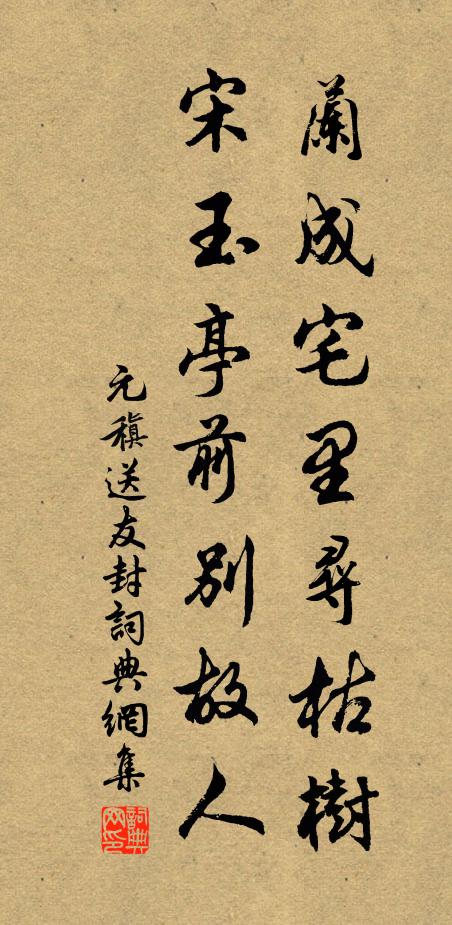 蘭成宅里尋枯樹
宋玉亭前別故人
元稹送友封詞典網集
詞典网印